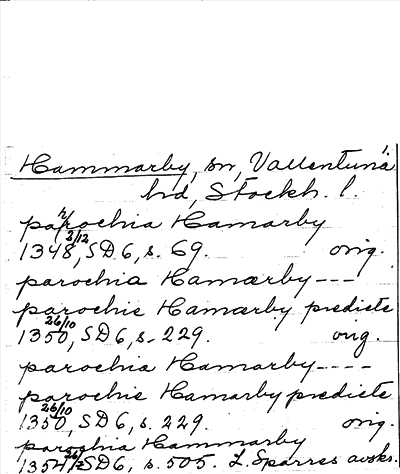 Hammarby, sn, Vallentuna
hd, Stockh. l.
parochia Hamarby
1348 2/12, SD 6, s. 69. orig.
parochia Hamærby ---
parochie Hamærby predicte
1350 26/10, SD 6, s. 229. orig.
parochia Hamærby ----
parochie Hamærby predicte
1350 26/10, SD 6, s. 229. orig.
parochia Hammarby
1354 SD 6, s. 505. L. Sparres avskr.